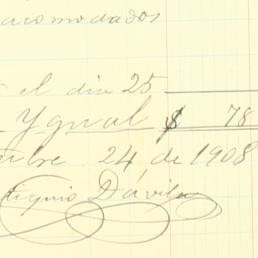 acomodados
el dia 25
Ygual $ 78
bre 24 de 1908
Dávila